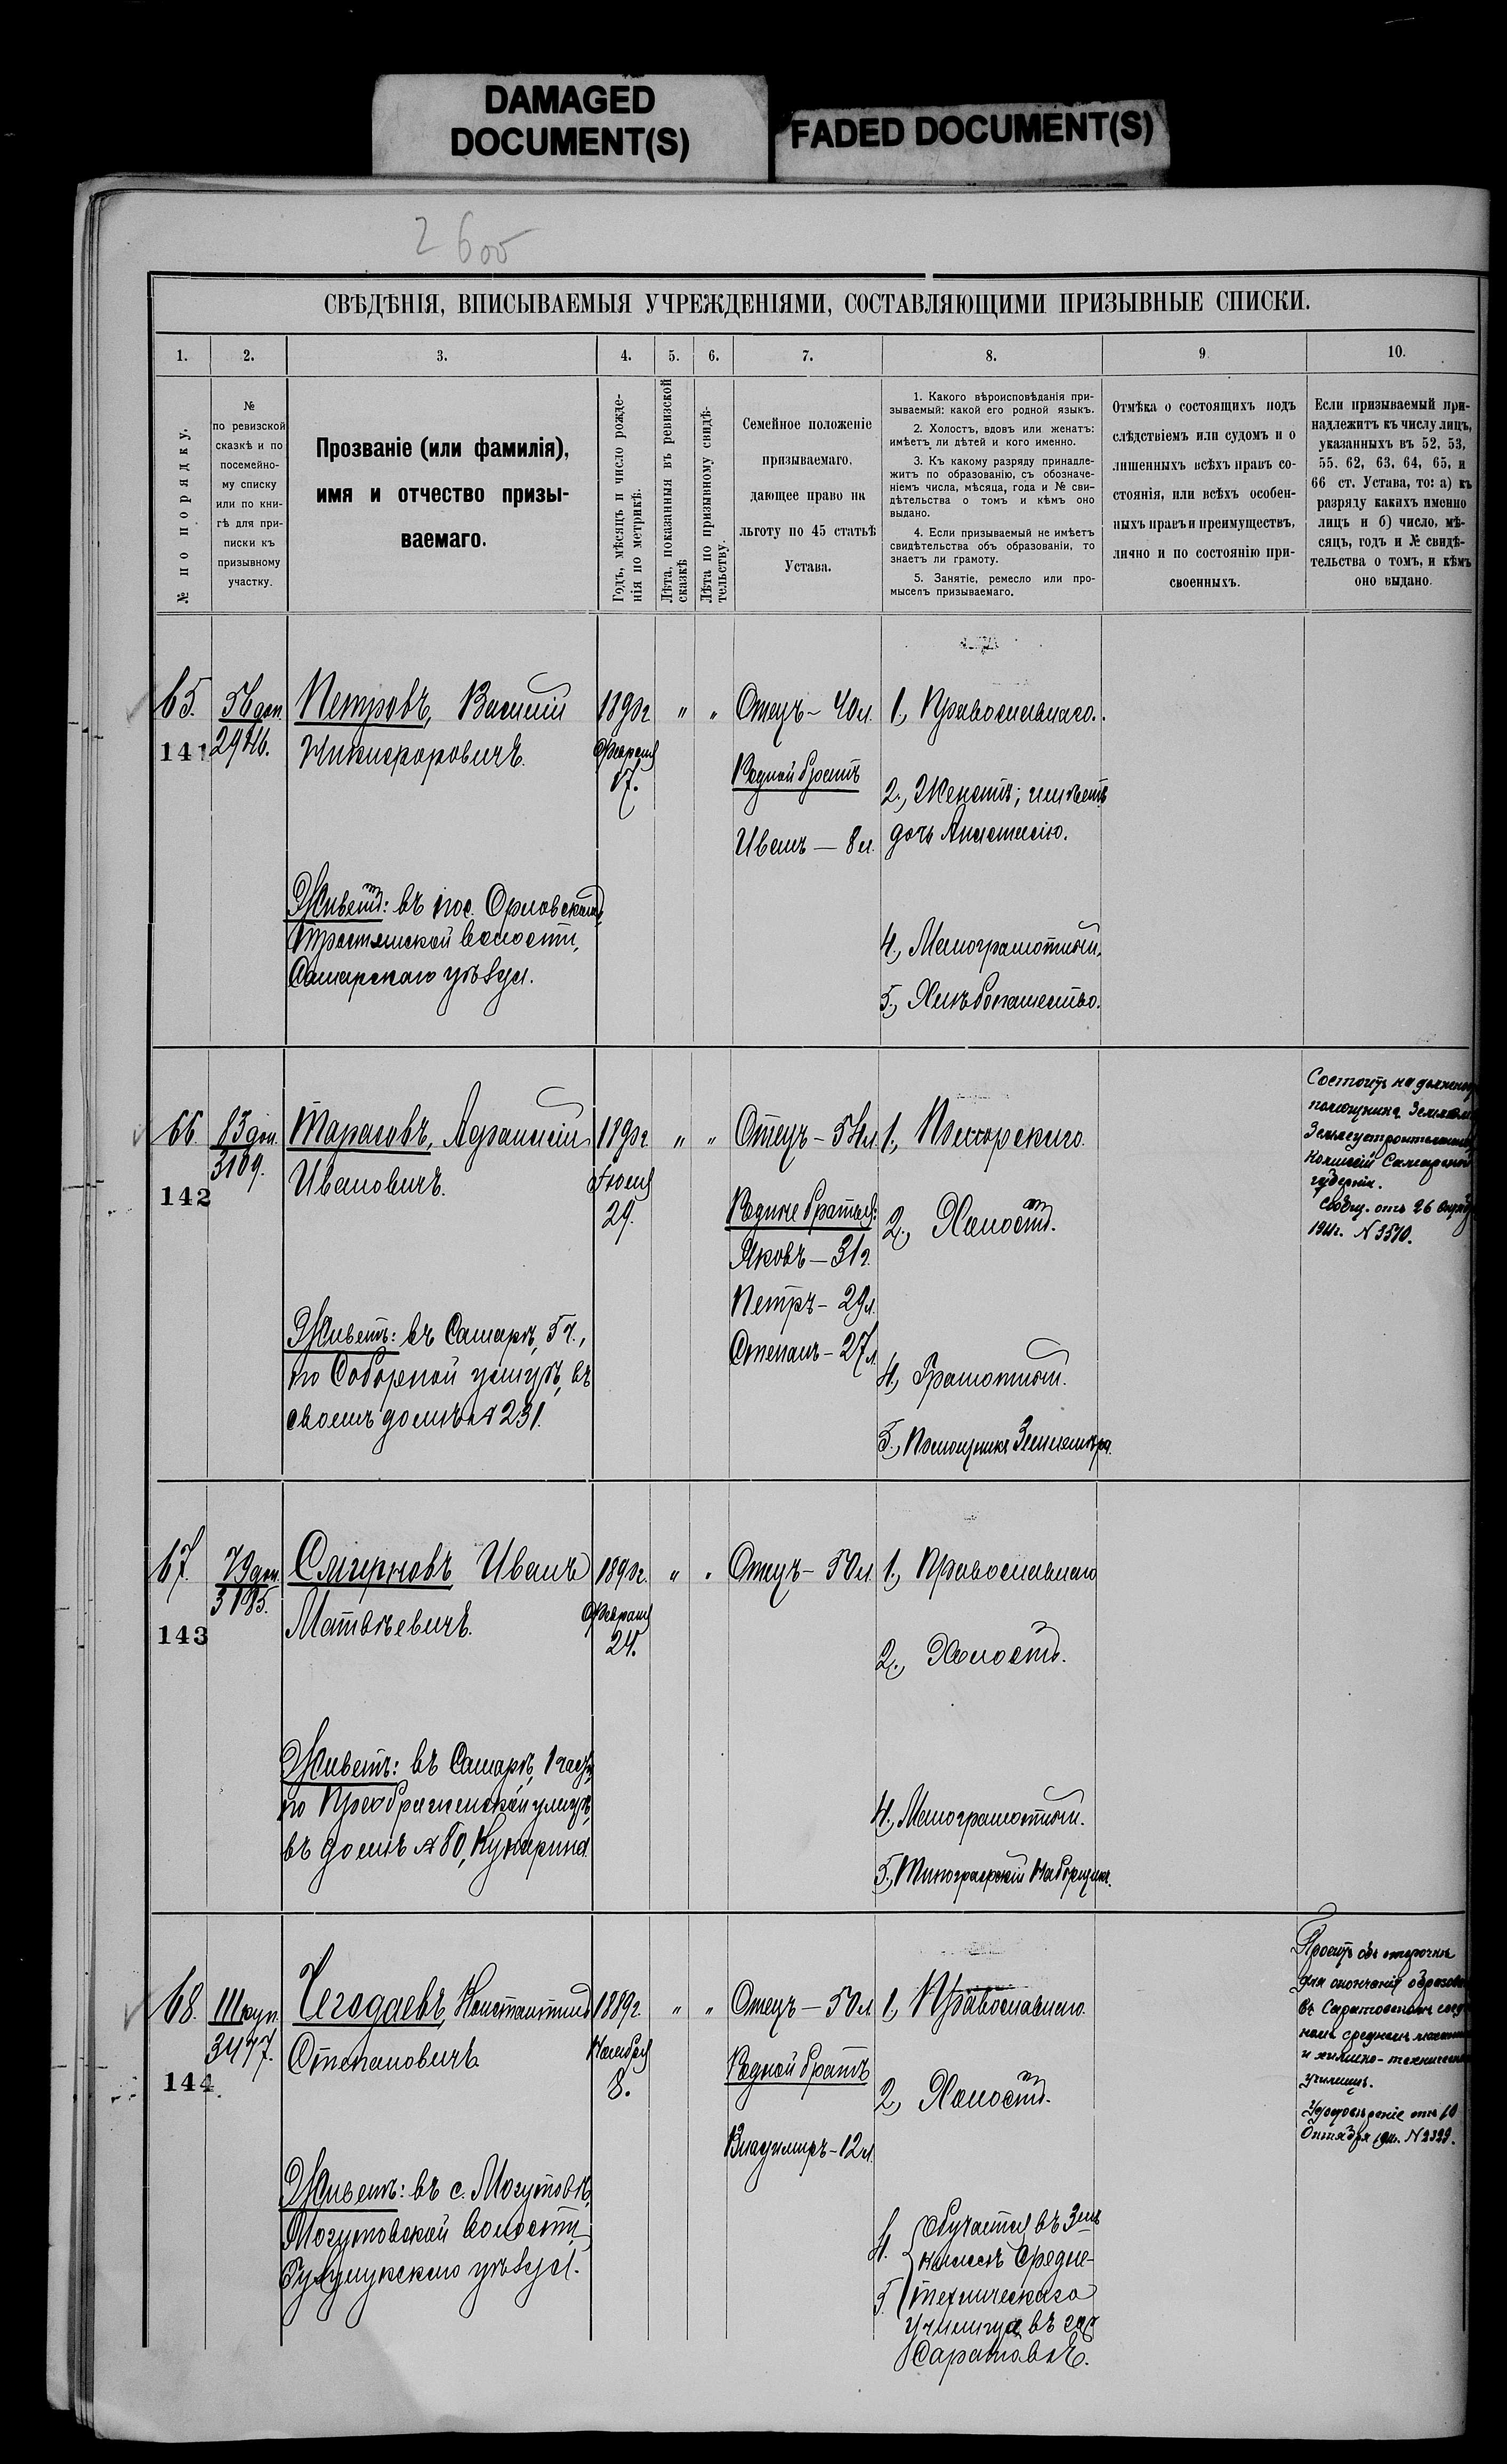 DAMAGED
DOCUMENT(S)
FADED DOCUMENT(S)
2600
СВѢДѢНІЯ, ВПИСЫВАЕМЫЯ УЧРЕЖДЕНІЯМИ, СОСТАВЛЯЮЩИМИ ПРИЗЫВНЫЕ СПИСКИ.
1.
2.
3.
4.
5.
6.
7.
8.
9
10.
№ по порядку.
№
по ревизской
сказкѣ и по
посемейно-
му списку
или по кни-
гѣ для при-
писки къ
призывному
участку.
Прозваніе (или фамилія),
имя и отчество призы-
ваемаго.
Годъ, мѣсяцъ и число рожде-
нія по метрикѣ.
Лѣта, показанныя въ ревизской
сказкѣ
Лѣта по призывному свидѣ-
тельству.
Семейное положеніе
призываемаго,
дающее право на
льготу по 45 статьѣ
Устава.
1. Какого вѣроисповѣданія при-
зываемый: какой его родной языкъ.
2. Холостъ, вдовъ или женатъ:
имѣетъ ли дѣтей и кого именно.
3. Къ какому разряду принадле-
житъ по образованію, съ обозначе-
ніемъ числа, мѣсяца, года и № сви-
дѣтельства о томъ и кѣмъ оно
выдано.
4. Если призываемый не имѣетъ
свидѣтельства объ образованіи, то
знаетъ ли грамоту.
5. Занятіе, ремесло или про-
мыселъ призываемаго.
Отмѣка о состоящихъ подъ
слѣдствіемъ или судомъ и о
лишенныхъ всѣхъ правъ со-
стоянія, или всѣхъ особен-
ныхъ правъ и преимуществъ,
лично и по состоянію при-
своенныхъ.
Если призываемый при-
надлежитъ къ числу лицъ,
указанныхъ въ 52, 53,
55, 62, 63, 64, 65, и
66 ст. Устава, то: а) къ
разряду какихъ именно
лицъ и б) число, мѣ-
сяцъ, годъ и № свидѣ-
тельства о томъ, и кѣмъ
оно выдано.
65.
141
56 доп.
2946.
Петровъ, Василій
Никифоровичъ.
Живетъ: въ пос. Орловскомъ,
Тростянской волости,
Самарскаго уѣзда.
1890г
Февраля
17.
"
"
Отецъ - 40л.
Родной братъ
Иванъ — 8л.
1, Православнаго.
2., Женатъ; имѣетъ
дочь Анастасію.
4., Малограмотный.
5., Хлѣбопашество.
66.
142
83 доп.
3109.
Тарасовъ, Афанасій
Ивановичъ.
Живетъ: въ Самарѣ, 5 ч.,
по Соборной улицѣ, въ
своемъ домѣ № 231.
1890г
29.
"
"
Отецъ - 54л.
Родные братья:
Яковъ — 31г.
Петръ - 29л.
Степанъ - 27л.
1,
2., Холостъ.
4., Грамотный.
5., Помощникъ Землемѣра.
Состоитъ на должности
помощника Землемѣра
Землеустроительной
Комиссіи Самарской
губерніи.
отъ 26
1911г. № 3570.
67.
143
79 доп.
3185.
Смирновъ Иванъ
Матвѣевичъ.
Живетъ: въ Самарѣ, 1 части,
по Преображенской улицѣ,
въ домѣ № 80,
1890г.
Февраля
24.
"
"
Отецъ - 50л.
1., Православнаго
2., Холостъ.
4., Малограмотный.
5., Типографскій Наборщикъ.
68.
144
III куп.
3477.
Чегодаевъ, Константинъ
Степановичъ
Живетъ: въ с. Могутовѣ,
Могутовской волости,
Бузулукскаго уѣзда.
1889г
Ноября
8.
"
"
Отецъ — 50л.
Родной братъ
Владимиръ - 12л.
1, Православнаго.
2, Холостъ.
4.
5.
Обучается въ 3емъ
классѣ Средне-
техническаго
Училища въ гор.
Саратовѣ.
Проситъ объ отсрочкѣ
для окончанія образован
въ Саратовскомъ соед
номъ среднемъ механико
и химико-техническомъ
училищѣ.
Удостовѣреніе отъ 10
Октября 1911. № 2329.